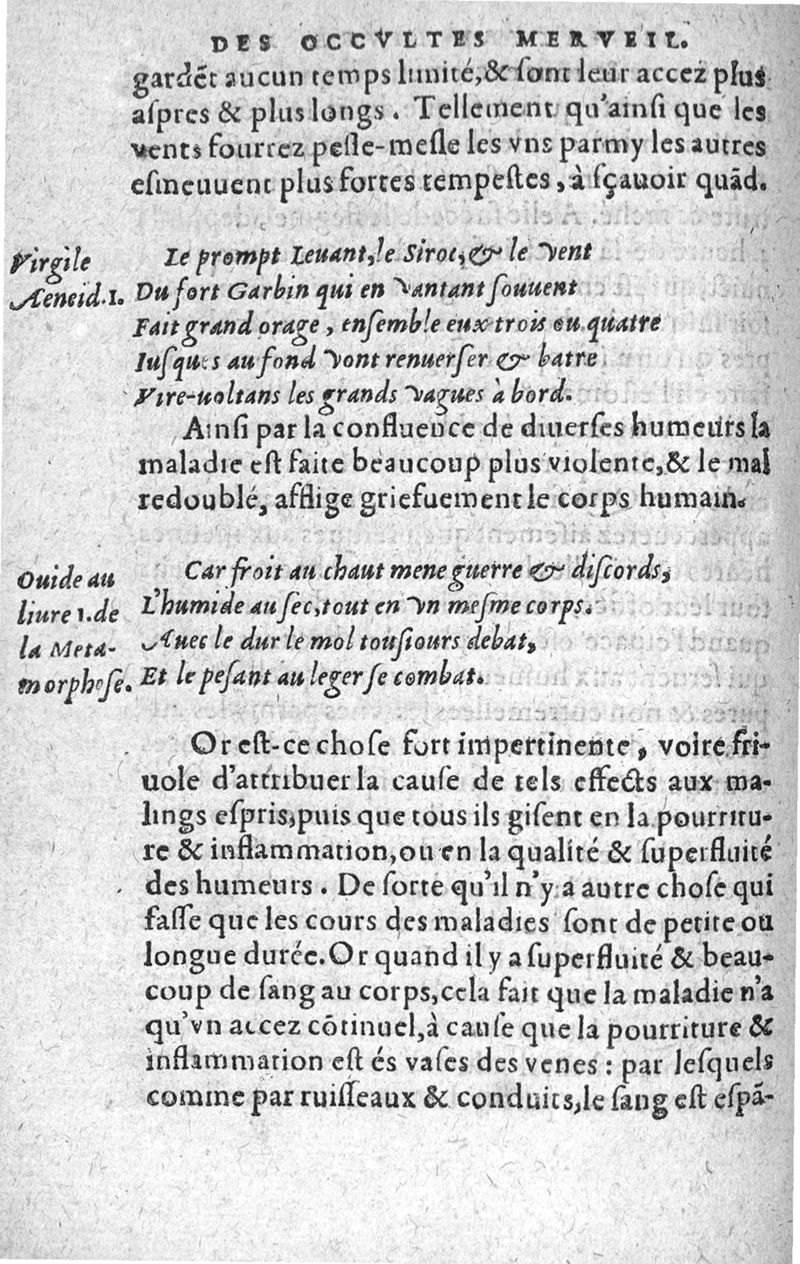 DES OCCVLTES MERVEIL.
gardẽt aucun temps limité,& ſont leur accez plus
aſpres & plus longs. Tellement qu'ainſi que les
vents fourrez peſle-meſle les vns parmy les autres
eſmeuuent plus fortes tempeſtes, à ſçauoir quãd.
Virgile
Aeneid.1.
Le prompt Leuant,le Siroc,& le vent
Du fort Garbin qui en vantant ſouuent
Fait grand orage, enſemble eux trois ou quatre
Iuſques au fond vont renuerſer & batre
Vire-uoltans les grands vagues à bord.
Ainſi par la confluence de diuerſes humeurs la
maladie eſt faite beaucoup plus violente,& le mal
redoublé, afflige griefuement le corps humain.
Ouide au
liure 1.de
la Meta-
morphoſe.
Car froit au chaut mene guerre & diſcords,
L'humide au ſec,tout en vn meſme corps.
Auec le dur le mol touſiours debat,
Et le peſant au leger ſe combat.
Or eſt-ce choſe fort impertinente, voire fri-
uole d'attribuer la cauſe de tels effects aux ma-
lings eſpris,puis que tous ils giſent en la pourritu-
re & inflammation,ou en la qualité & ſuperfluité
des humeurs. De ſorte qu'il n'y a autre choſe qui
faſſe que les cours des maladies ſont de petite ou
longue durée.Or quand il y a ſuperfluité & beau-
coup de ſang au corps,cela fait que la maladie n'a
qu'vn accez cõtinuel,à cauſe que la pourriture &
inflammation eſt és vaſes des venes : par leſquels
comme par ruiſſeaux & conduits,le ſang eſt eſpã-